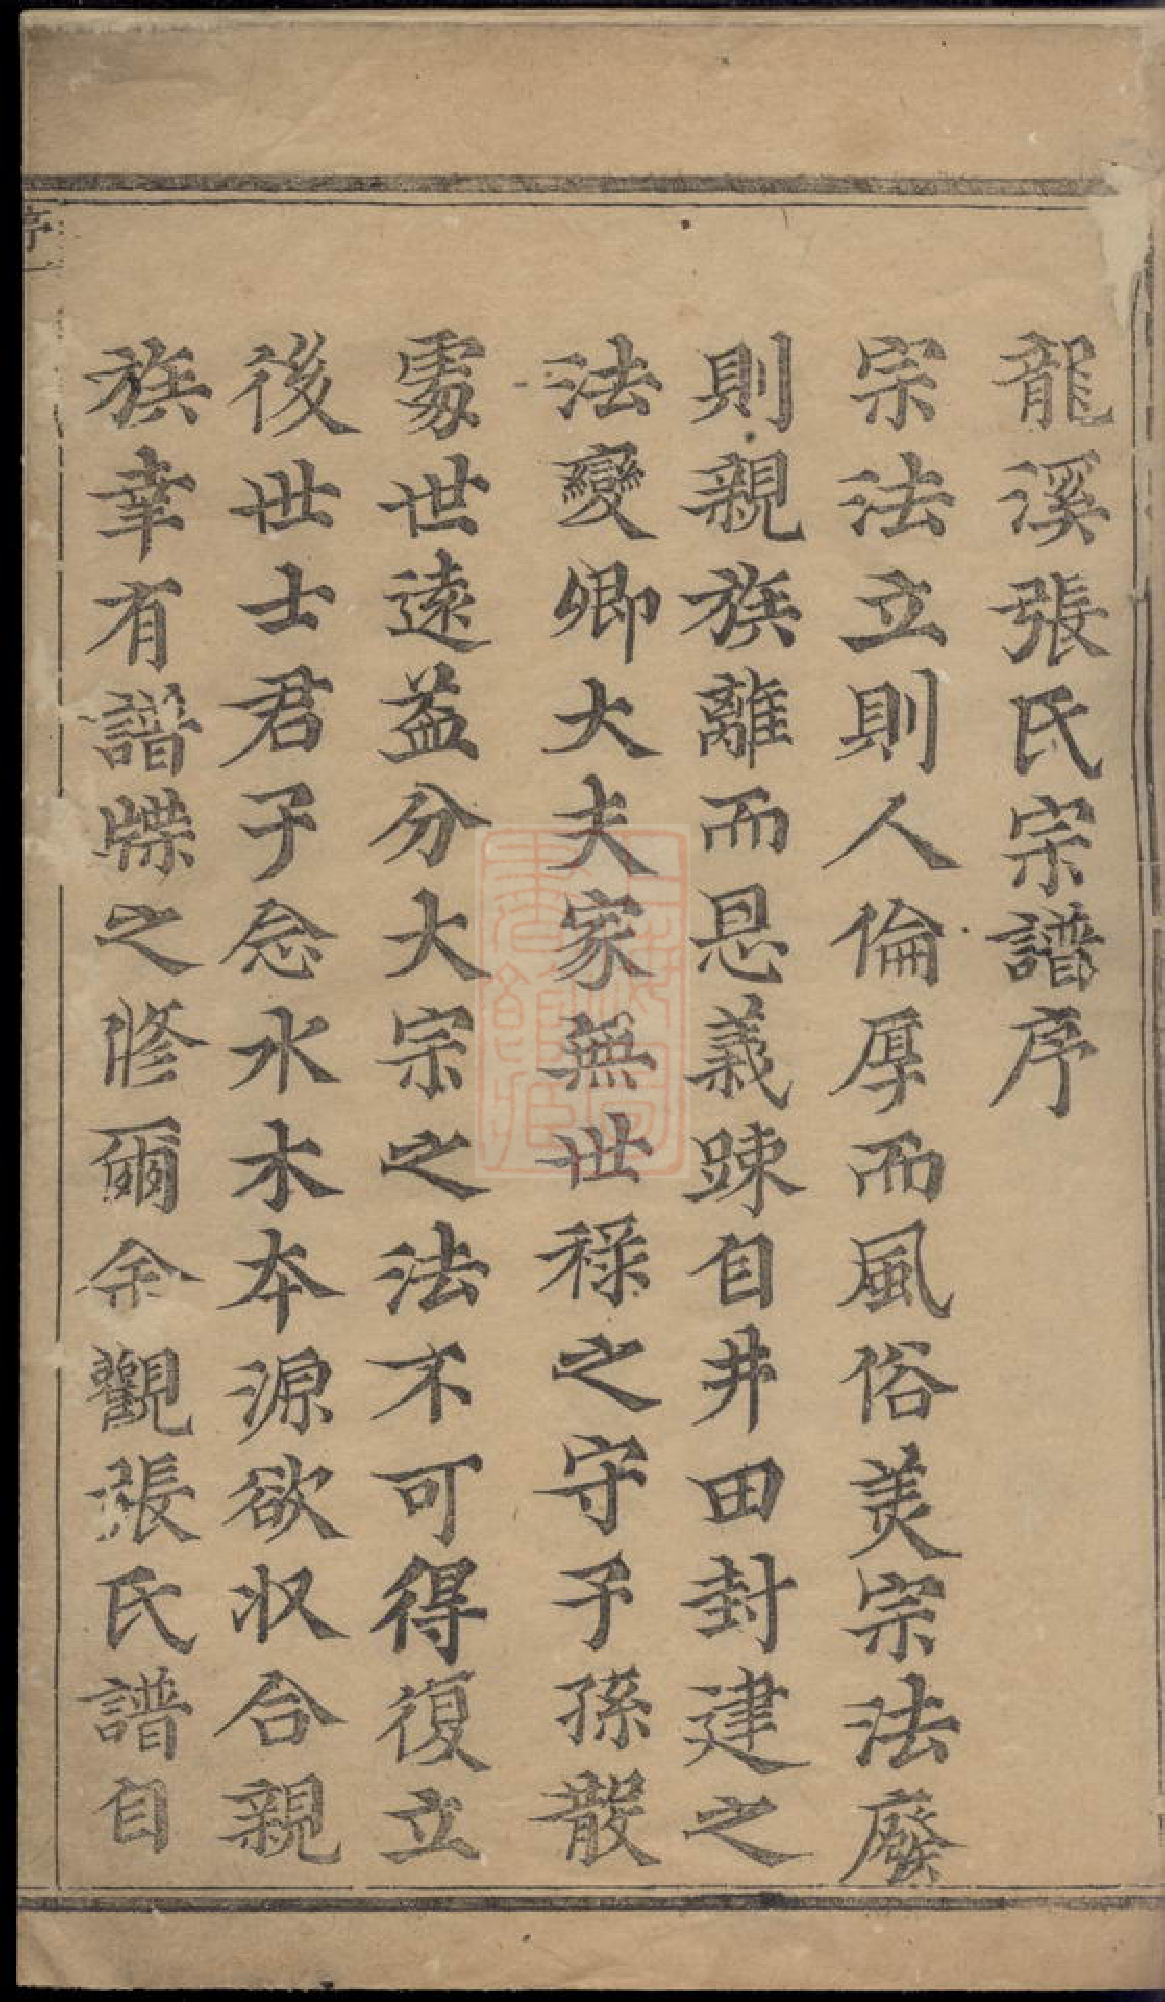 龍溪張氏宗譜序
宗法立則人倫厚而風俗美宗法廢
則親族離而恩義踈自井田封建之
法變卿大夫家無世祿之守子孫散
處世逺益分大宗之法不可得復立
後世士君子念水木本源欲収合親
族幸有譜牒之修爾余觀張氏譜自
序一
上海圖書館藏